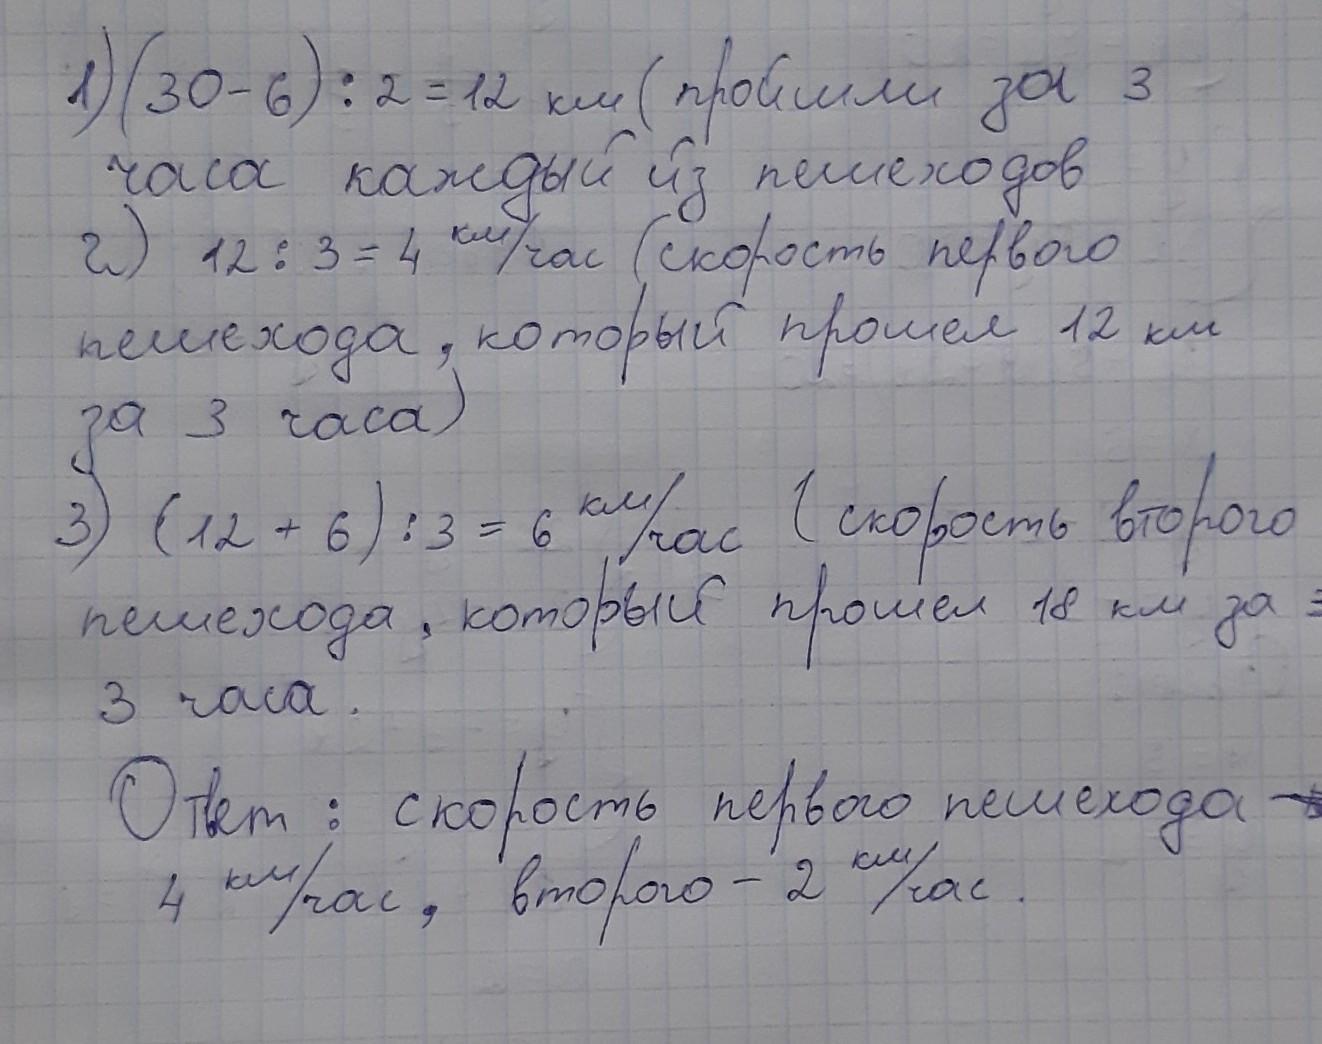 1) (30-6) : 2 = 12 км (пройшли за 3
часа каждый из пешеходов
2) 12 : 3 = 4 км/час (скорость первого
пешехода, который прошел 12 км
за 3 часа)
3) (12 + 6) : 3 = 6 км/час (скорость второго
пешехода, который прошел 18 км за
3 часа.
Ответ : скорость первого пешехода -
4 км/час, второго - 2 км/час.